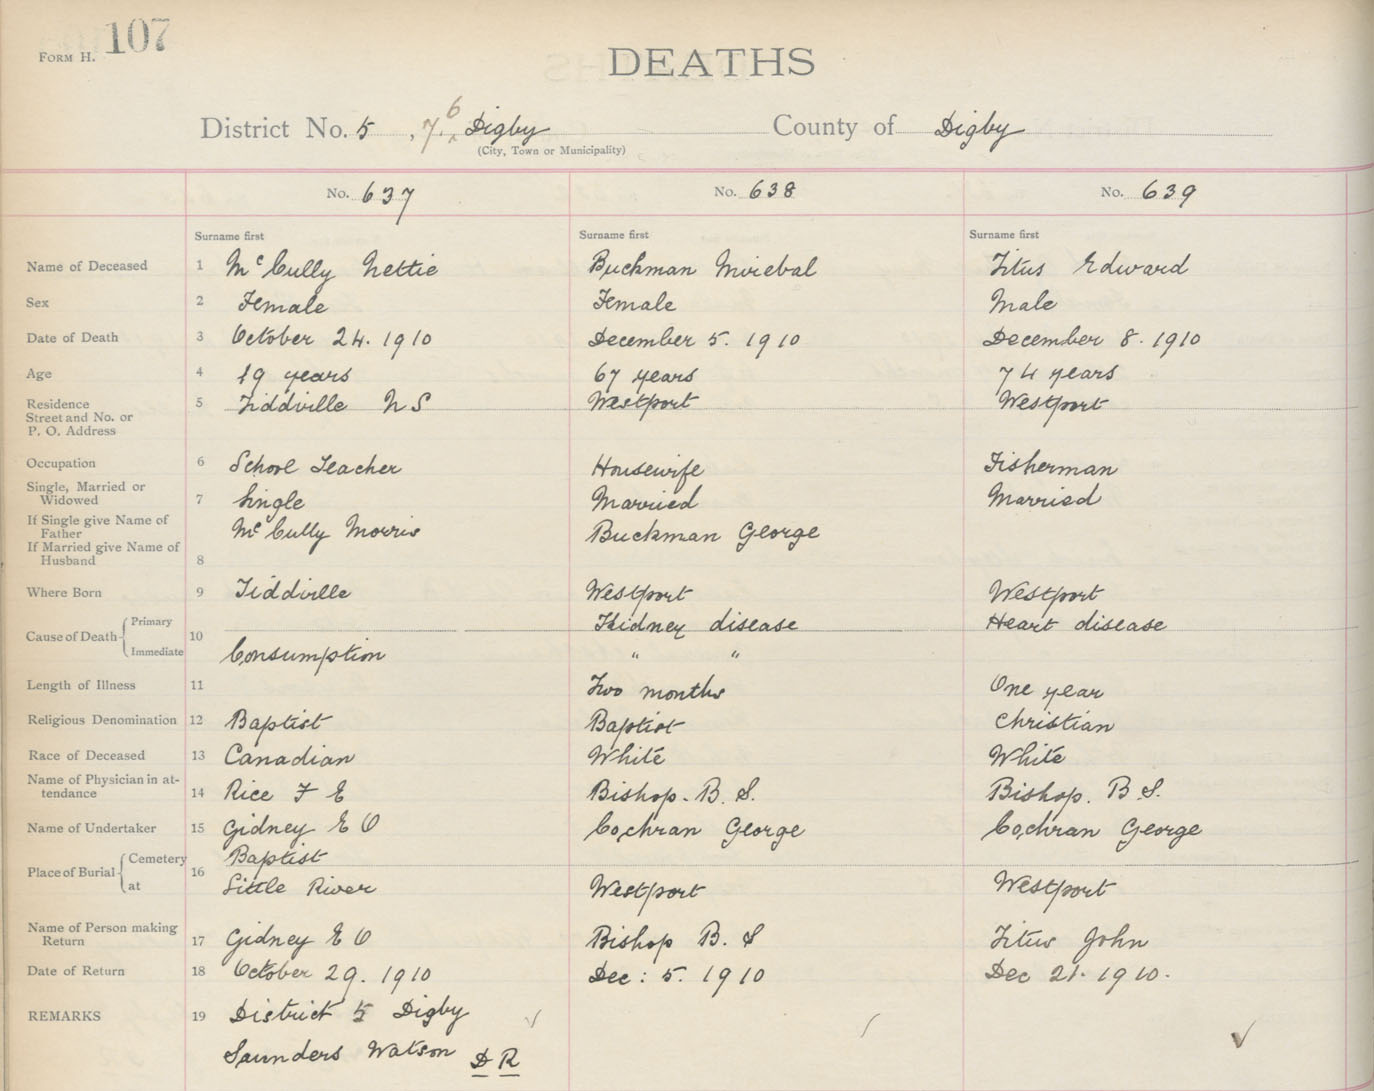 FORM H. 107
DEATHS
District No. 5, 7. 6 Digby County of Digby
(City, Town or Municipality)
No. 637 No. 638 No. 639
Surname first Surname first Surname first
Name of Deceased 1 McCully Nettie Buckman Mirebal Titus Edward
Sex 2 Female Female Male
Date of Death 3 October 24. 1910 December 5. 1910 December 8. 1910
Age 4 19 years 67 years 74 years
Residence 5 Tiddville N S Westport Westport
Street and No. or
P. O. Address
Occupation 6 School Teacher Housewife Fisherman
Single, Married or
Widowed 7 Single Married Married
If Single give Name of
Father McCully Morris Buckman George
If Married give Name of
Husband 8
Where Born 9 Tiddville Westport Westport
Cause of Death Primary 10 Kidney disease Heart disease
Immediate Consumption " "
Length of Illness 11 Two months One year
Religious Denomination 12 Baptist Baptist Christian
Race of Deceased 13 Canadian White White
Name of Physician in at-
tendance 14 Rice F E Bishop. B. S. Bishop. B. S.
Name of Undertaker 15 Gidney E O Cochran George Cochran George
Place of Burial Cemetery 16 Baptist
at Little River Westport Westport
Name of Person making
Return 17 Gidney E O Bishop B. S Titus John
Date of Return 18 October 29. 1910 Dec: 5. 1910 Dec 21. 1910.
REMARKS 19 District 5 Digby
Saunders Watson D R